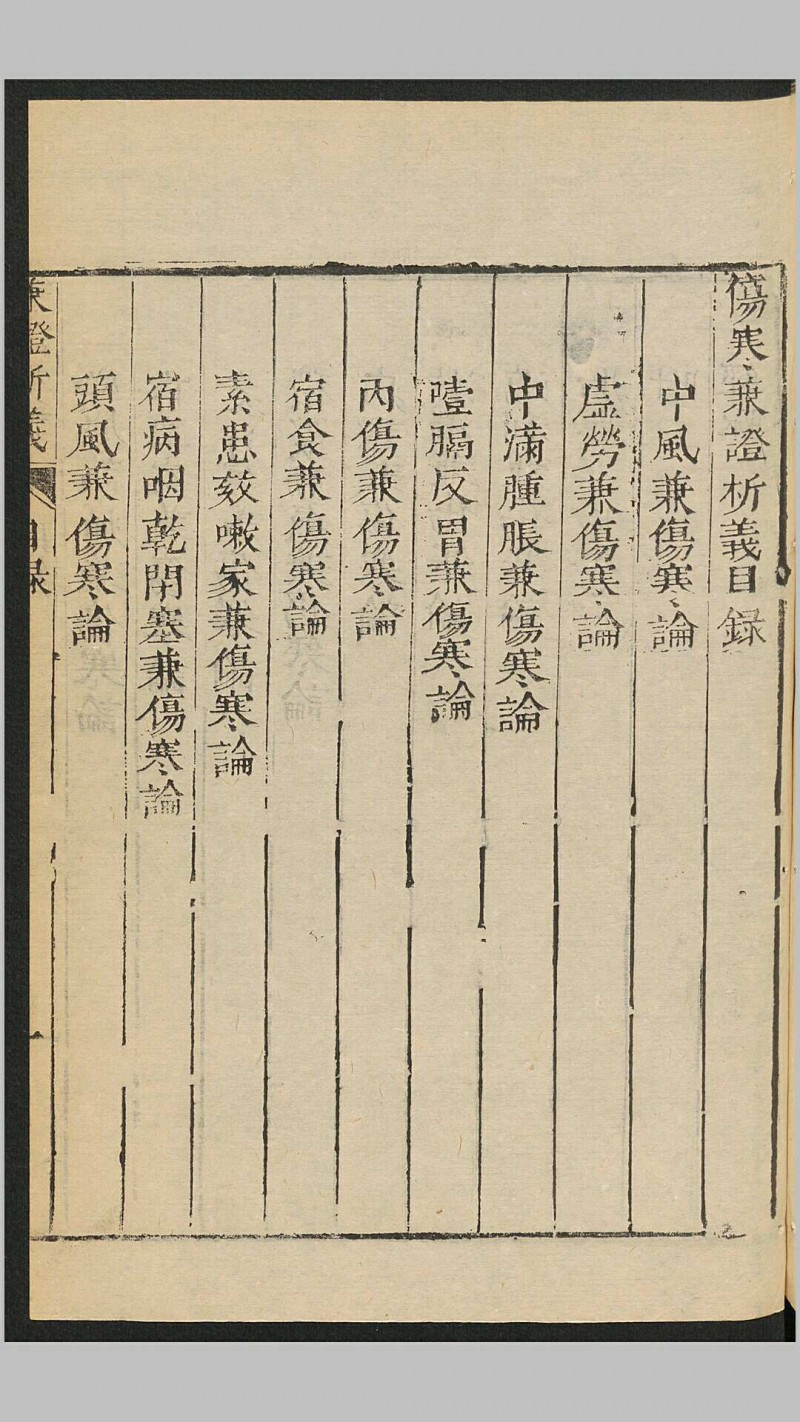 傷寒兼證析義目録
中風兼傷寒論
虛勞兼傷寒論
中滿腫脹兼傷寒論
噎膈反胃兼傷寒論
内傷兼傷寒論
宿食兼傷寒論
素患欬嗽家兼傷寒論
宿病咽乾閉塞兼傷寒論
頭風兼傷寒論
兼證析義 目録 一